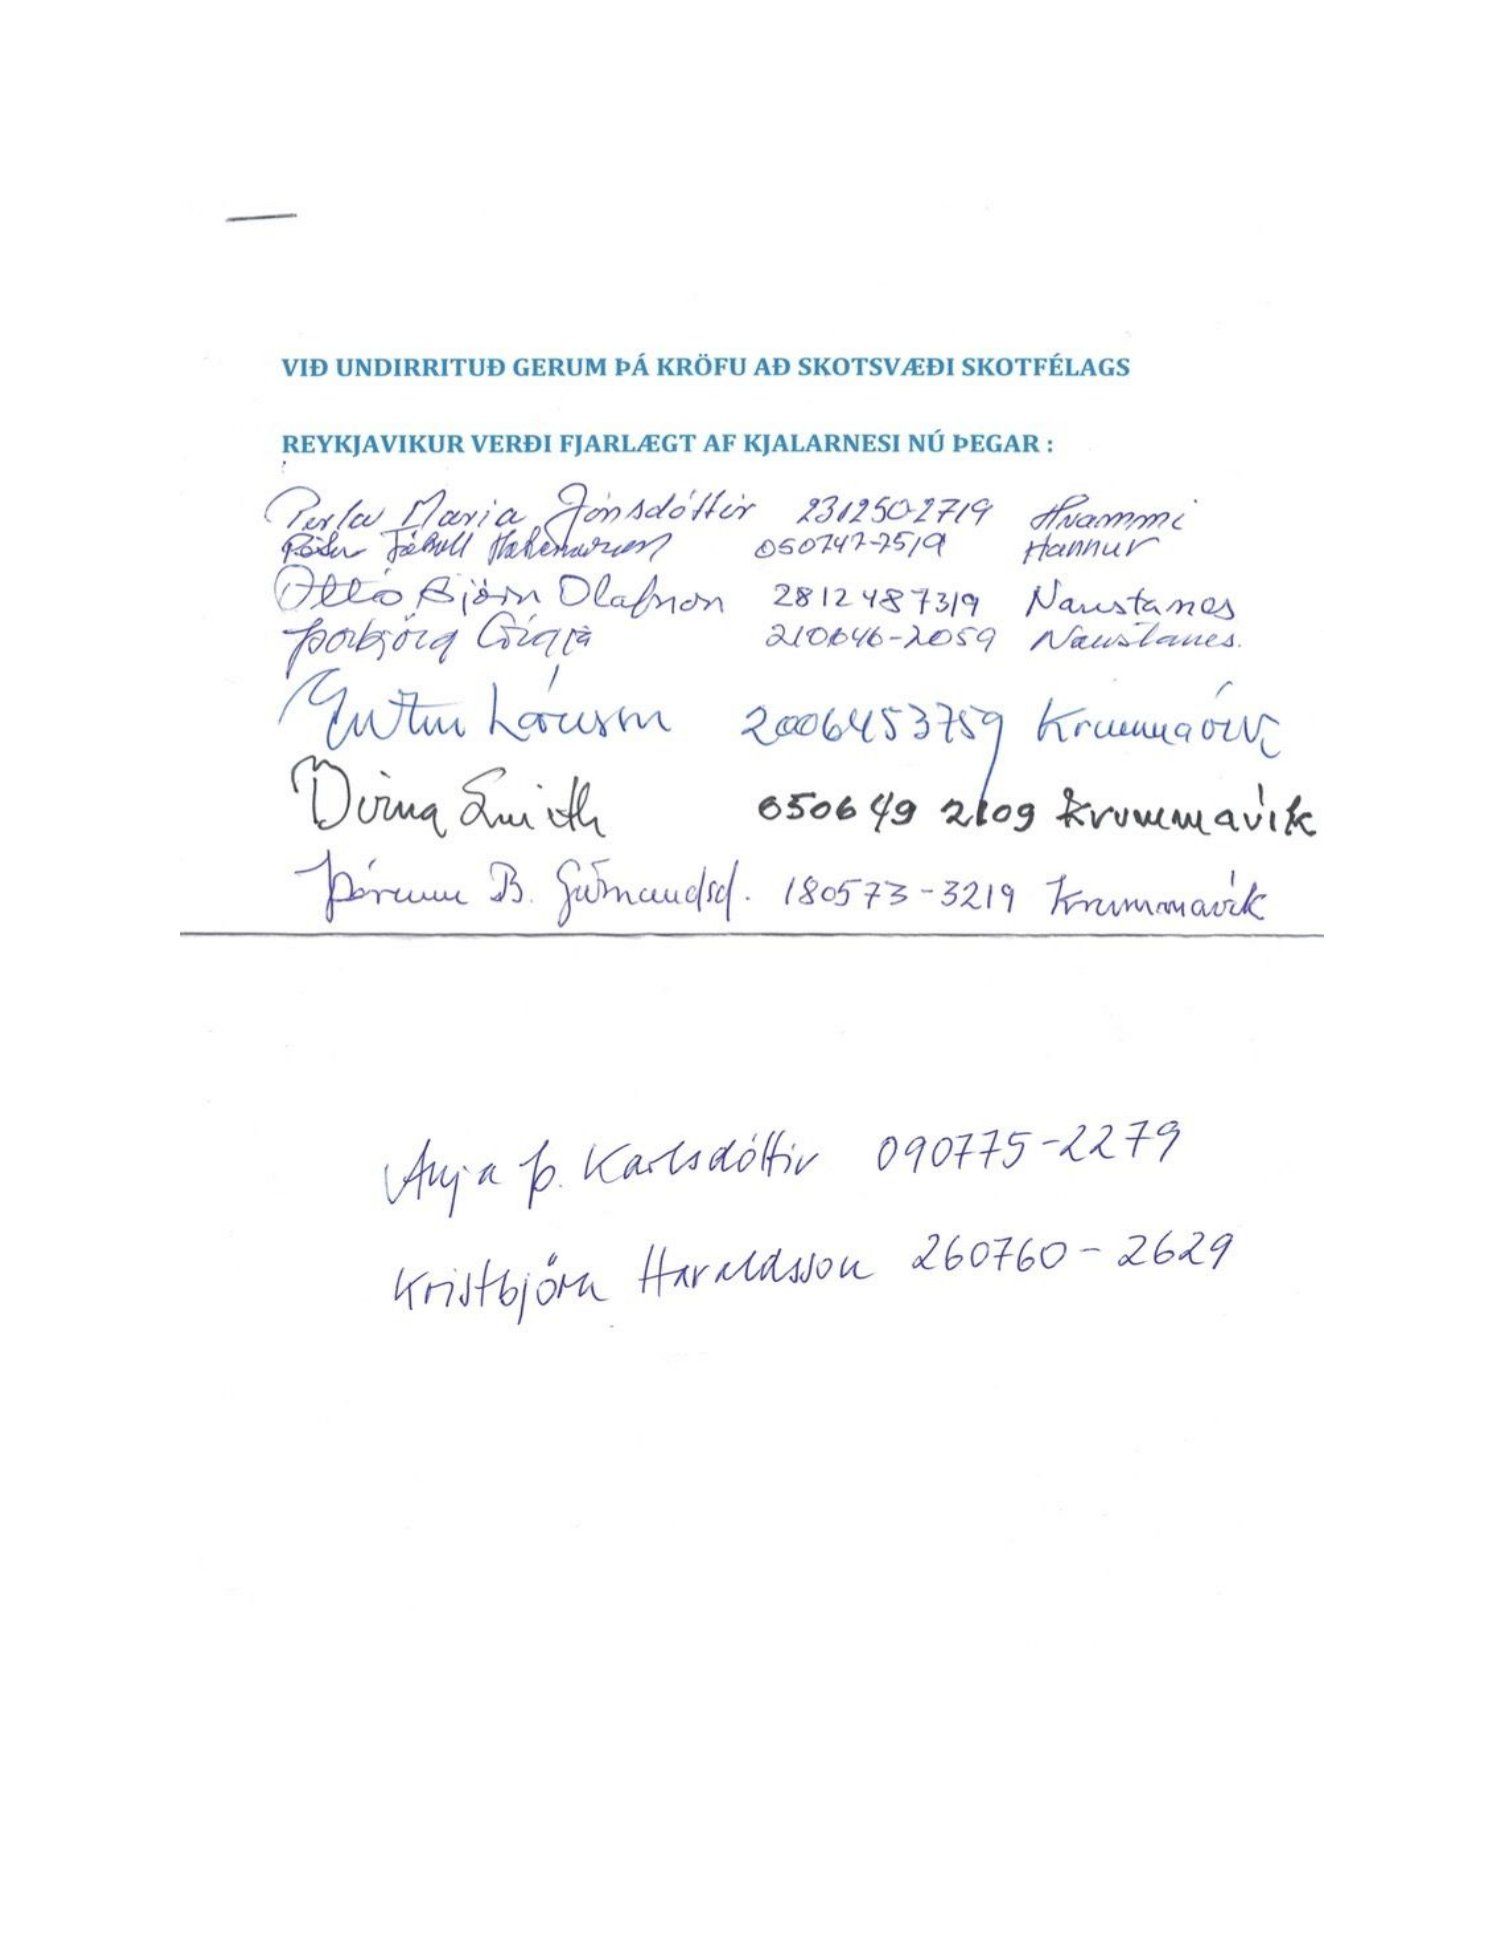 VIÐ UNDIRRITUÐ GERUM ÞÁ KRÖFU AÐ SKOTSVÆÐI SKOTFÉLAGS
REYKJAVIKUR VERÐI FJARLÆGT AF KJALARNESI NÚ ÞEGAR :
Perla Maria Jónsdóttir 231250-2719 Hvammi
050747-7519
Ottó Björn Olafsson 2812487319 Naustanes
Þorbjörg Gígja 210646-2059 Naustanes.
Lárusson 2006453759
Birna Smith 050649 2109 Krummavík
Þórunn B. Guðmundsd. 180573-3219 Krummavík
Anja Þ. Karlsdóttir 090775-2279
Kristbjörn Haraldsson 260760-2629